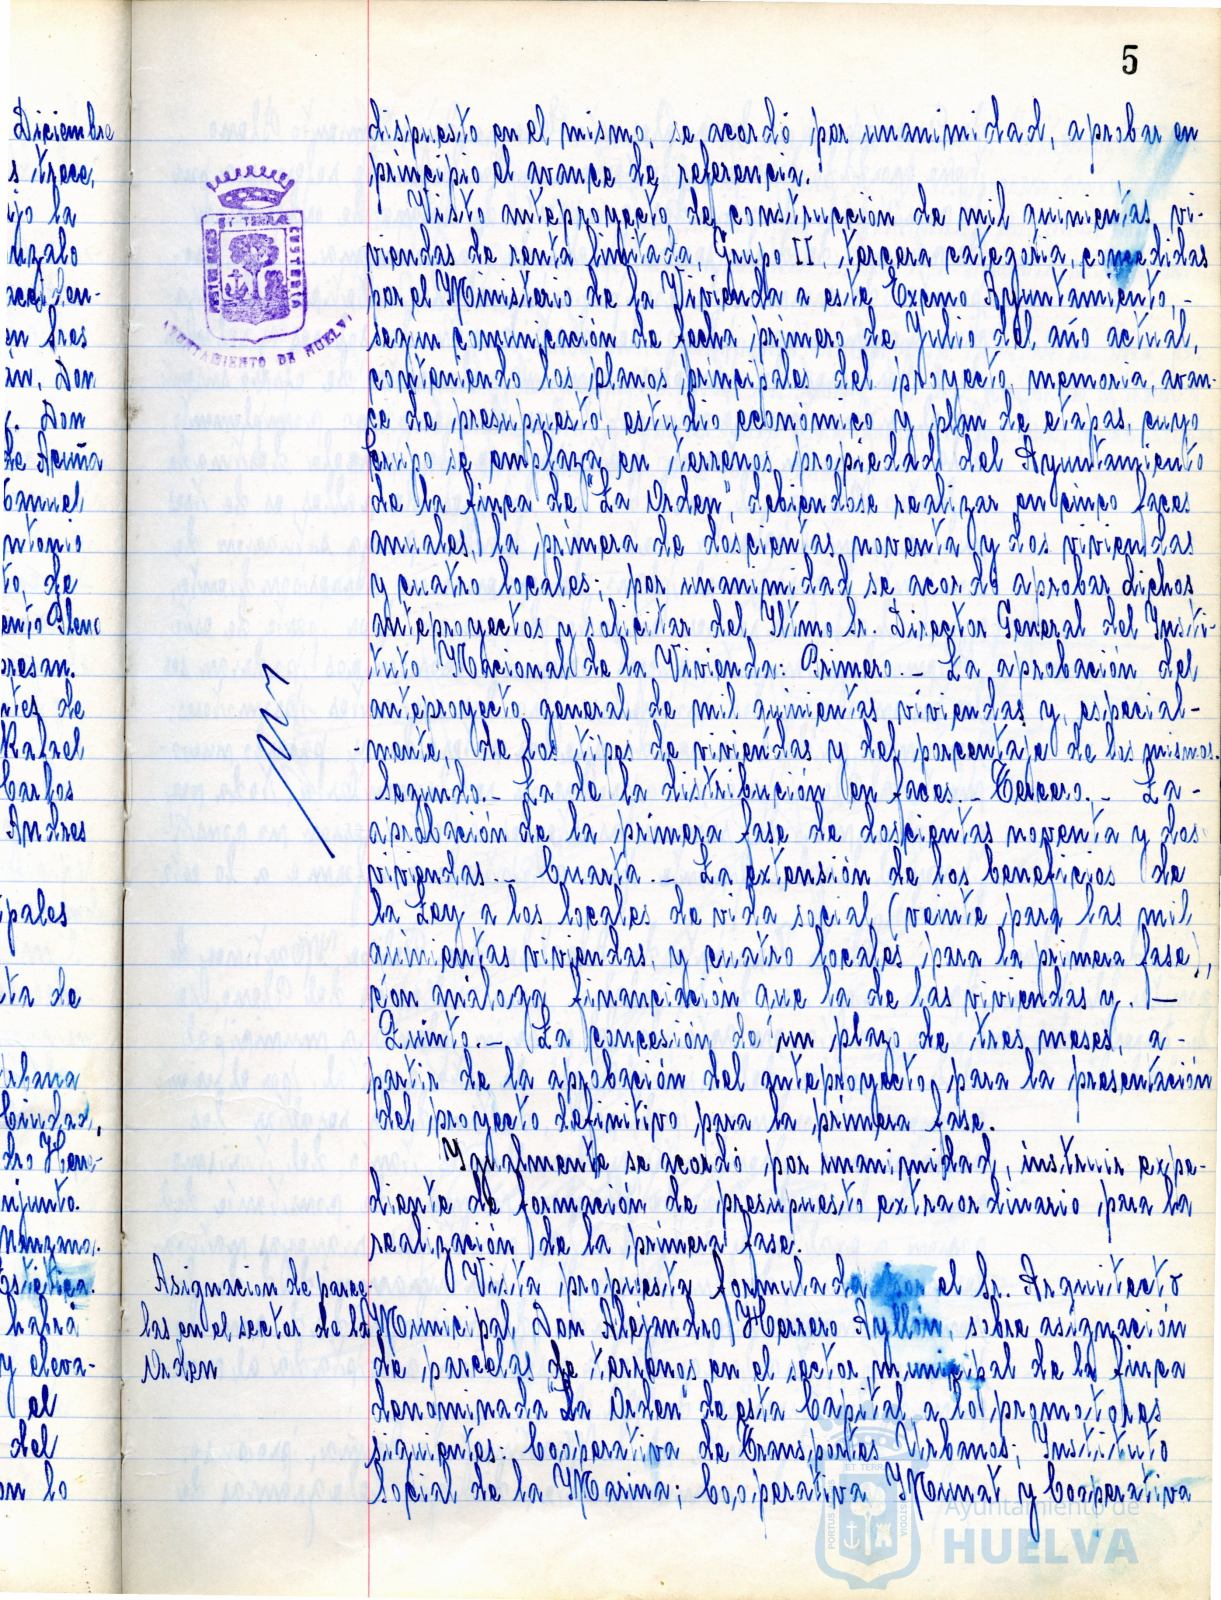 5
Diciembre
s trece,
ijo la
nzalo
acciden-
en fres
in, Don
z. Don
de Acuña
Manuel
ntonio
to, de
ento Pleno
presan.
ntes de
Rafael
Carlos
Andres
ipales
ta de
Urbana
Ciudad,
dro Herre-
njunto.
Manzano,
Estética.
habrá
y eleva-
el
del
on lo
ET TERRAE
CUSTODIA
PORTUS MARIS
AYUNTAMIENTO DE HUELVA
dispuesto en el mismo, se acordó por unanimidad, aprobar en
principio el avance de referencia.
Visto anteproyecto de construcción de mil quinientas vi-
viendas de renta limitada, Grupo II, tercera categoria, concedidas
por el Ministerio de la Vivienda a este Excmo Ayuntamiento, -
segun comunicación de fecha primero de Julio del año actual,
conteniendo los planos principales del proyecto, memoria, avan-
ce de presupuesto, estudio económico y plan de etapas, cuyo
Grupo se emplaza en terrenos propiedad del Ayuntamiento
de la finca de "La Orden", debiendose realizar en cinco faces
anuales, la primera de doscientas noventa y dos viviendas
y cuatro locales; por unanimidad se acordó aprobar dichos
anteproyectos y solicitar del Iltmo Sr. Director General del Insti-
tuto Nacional de la Vivienda: Primero.- La aprobación del
anteproyecto general de mil quinientas viviendas y, especial-
mente, de los tipos de viviendas y del porcentaje de los mismos.
Segundo.- La de la distribución en faces.- Tercero.- La -
aprobación de la primera fase de doscientas noventa y dos
viviendas.- Cuarta.- La extensión de los beneficios de
la Ley a los locales de vida social (veinte para las mil
quinientas viviendas, y cuatro locales para la primera fase),
con análoga financiación que la de las viviendas y. -
Quinto.- La concesión de un plazo de tres meses, a -
partir de la aprobación del anteproyecto, para la presentación
del proyecto definitivo para la primera fase.
Ygualmente se acordó por unanimidad, instruir expe-
diente de formación de presupuesto extraordinario para la
realización de la primera fase.
Asignación de parce-
las en el sector de la
Orden
Vista propuesta formulada por el Sr. Arquitecto
Municipal, Don Alejandro Herrero Ayllón, sobre asignación
de parcelas de terrenos en el sector municipal de la finca
denominada "La Orden" de esta Capital a los promotores
siguientes: Cooperativa de Transportes Urbanos; Instituto
Social de la Marina; Cooperativa Munat y Cooperativa
Ayuntamiento de
HUELVA